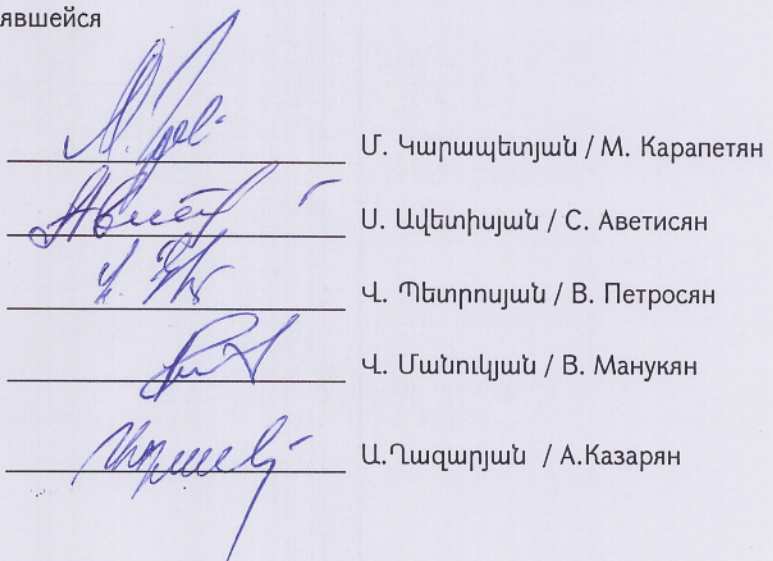 явшейся
Մ. Կարապետյան / М. Карапетян
Ս. Ավետիսյան / С. Аветисян
Վ. Պետրոսյան / В. Петросян
Վ. Մանուկյան / В. Манукян
Ա.Ղազարյան / А.Казарян